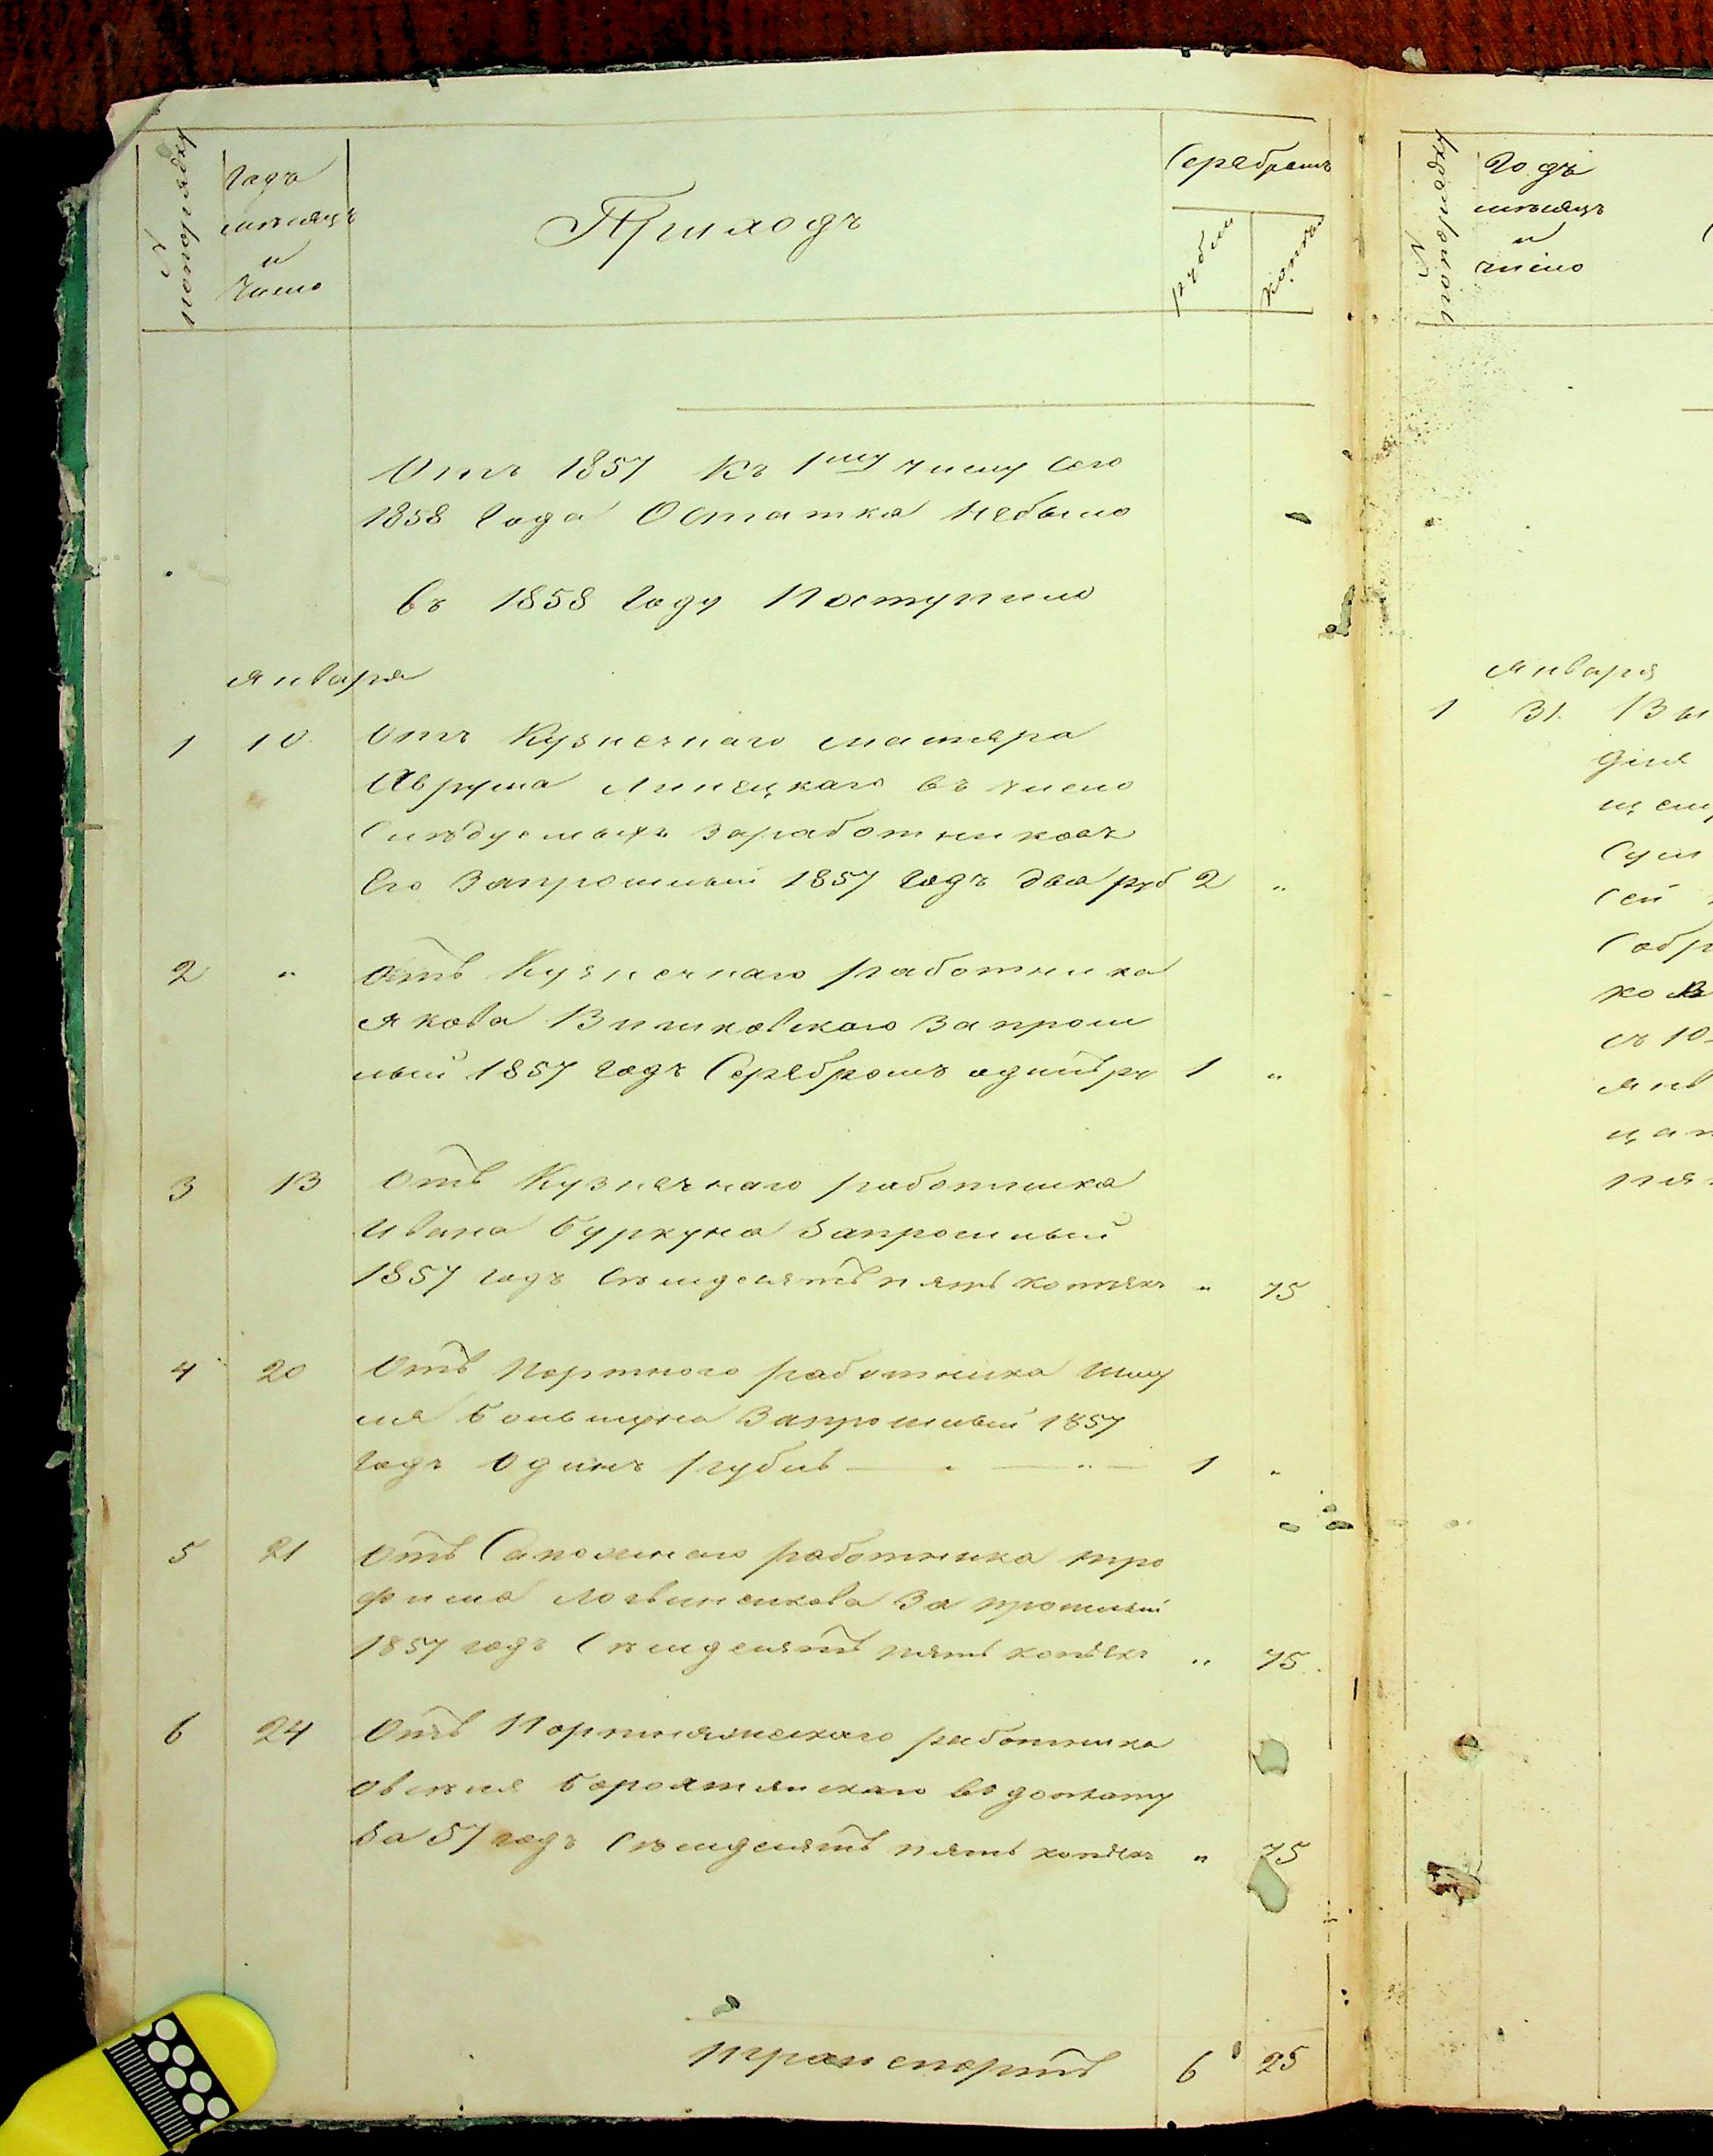 № по порядку
Годъ
мѣсяцъ
и
число
Приходъ
Серебромъ
рубли
копѣй
Отъ 1857 къ 1му числу сего
1858 года Остатка небыло
въ 1858 году Поступило
января
1 10 Отъ Кузнечнаго мастера
Аврума Липецкаго въ число
Слѣдуемыхъ заработниковъ
Его Запрошлый 1857 годъ два руб 2 "
2 " Отъ Кузнечнаго работника
Якова Вишковскаго Запрош
лый 1857 годъ Серебромъ одинъ ру 1 "
3 13 Отъ Кузнечнаго работника
Ивана Буркуна Запрошлый
1857 годъ Семдесятъ пять копѣекъ " 75
4 20 Отъ Портного работника Шму
ля Большуна Запрошлый 1857
годъ Одинъ рубль 1 "
5 21 Отъ Сапожнаго работника тро
фима Логвиненкова За прошлый
1857 годъ Семдесятъ пять копѣекъ " 75
6 24 Отъ Портняжескаго работника
Овсѣя Бороятянскаго въ доплату
За 57 годъ Семдесятъ пять копѣекъ " 75
транспортъ 6 25
№ по порядку
Годъ
мѣсяцъ
и
число
января
1 31. Вы
для
щем
Сум
Сей
Собр
ко
съ 10
янв
цат
пя